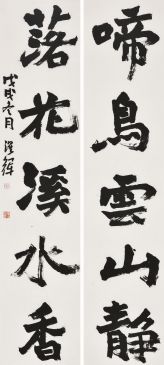 啼鳥雲山静
落花溪水香
戊戌冬月